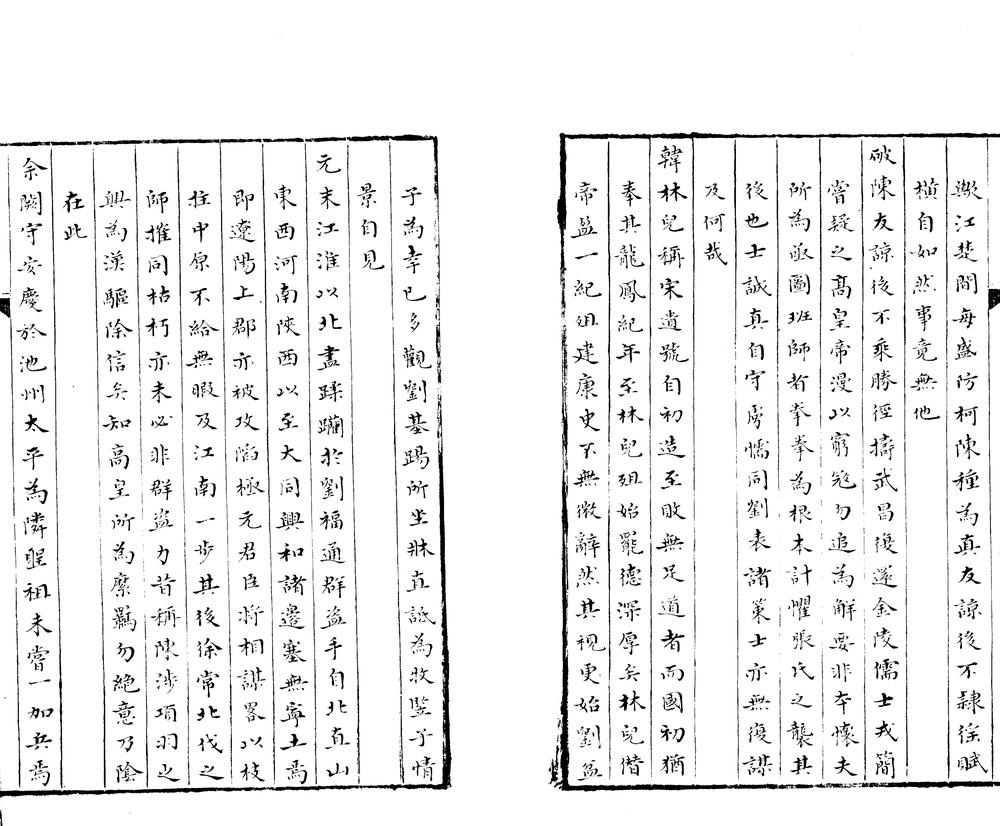 歟江楚間每盛防柯陳種為真友諒後不隷徭賦
橫自如然事竟無他
破陳友諒後不乘勝徑擣武昌復還金陵儒士戎簡
嘗疑之高皇帝漫以窮寇勿追為解要非本懷夫
所為亟圖班師者拳拳為根本計懼張氏之襲其
後也士誠真自守虜懦同劉表諸策士亦無復謀
及何哉
韓林兒稱宋遺號自初造至敗無足道者而國初猶
奉其龍鳳紀年至林兒殂始罷德深厚矣林兒僭
帝盈一紀殂建康史不無微辭然其視更始劉盆
子為幸已多觀劉基踢所坐牀直詆為牧豎子情
景自見
元末江淮以北盡蹂躪於劉福通群盜手自北直山
東西河南陝西以至大同興和諸邊塞無寧土焉
即遼陽上郡亦被攻陷極元君臣將相謀畧以枝
拄中原不給無暇及江南一步其後徐常北伐之
師摧同枯朽亦未必非群盜力昔稱陳涉項羽之
興為漢驅除信矣知高皇所為縻羈勿絕意乃陰
在此
余闕守安慶於池州太平為隣聖祖未嘗一加兵焉